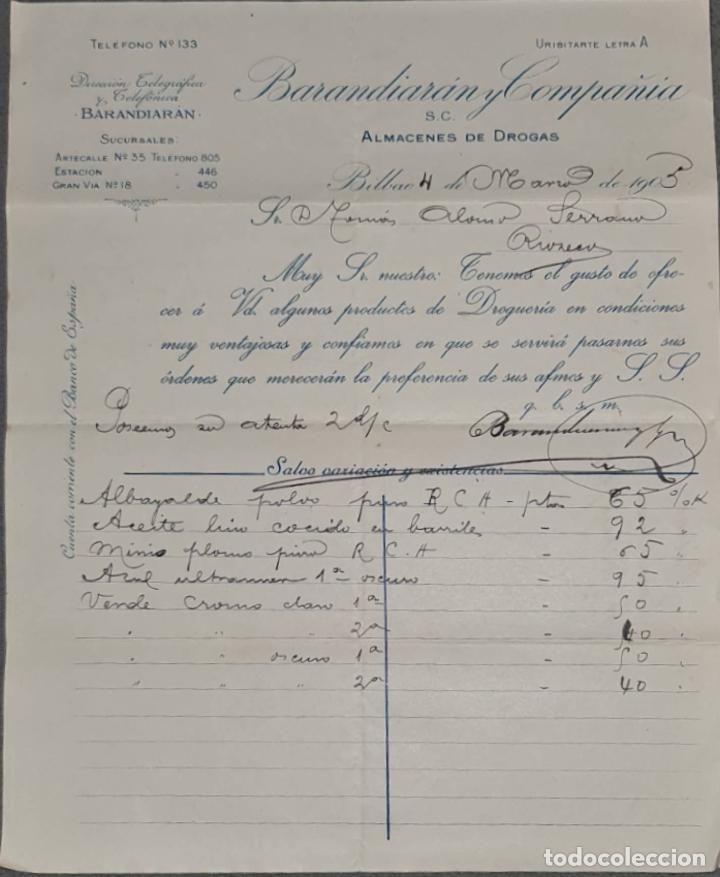 TELÉFONO Nº 133
URIBITARTE LETRA A
Dirección Telegráfica
y Telefónica
BARANDIARÁN
SUCURSALES:
ARTECALLE Nº 35 TELÉFONO 805
ESTACION " 446
GRAN VIA Nº 18 " 450
Barandiarán y Compañía
S.C.
ALMACENES DE DROGAS
Bilbao 4 de Marzo de 1905
Sr. D. Tomás Alonso Serrano
Rioseco
Muy Sr. nuestro: Tenemos el gusto de ofre-
cer á Vd. algunos productos de Droguería en condiciones
muy ventajosas y confiamos en que se servirá pasarnos sus
órdenes que merecerán la preferencia de sus afmos y S. S.
q. b. s. m.
Poseemos su atenta 2 d/c
Barandiaran y
Salvo variación y existencias
Cuenta corriente con el Banco de España
Albayalde polvo puro R C A - ptas 65 % K
Aceite lino cocido en barriles - 92 "
Minio plomo puro R. C. A - 65 "
Azul ultramar 1ª oscuro - 95 "
Verde cromo claro 1ª - 50 "
" " " 2ª - 40 "
" " oscuro 1ª - 50 "
" " " 2ª - 40 "
todocoleccion.net